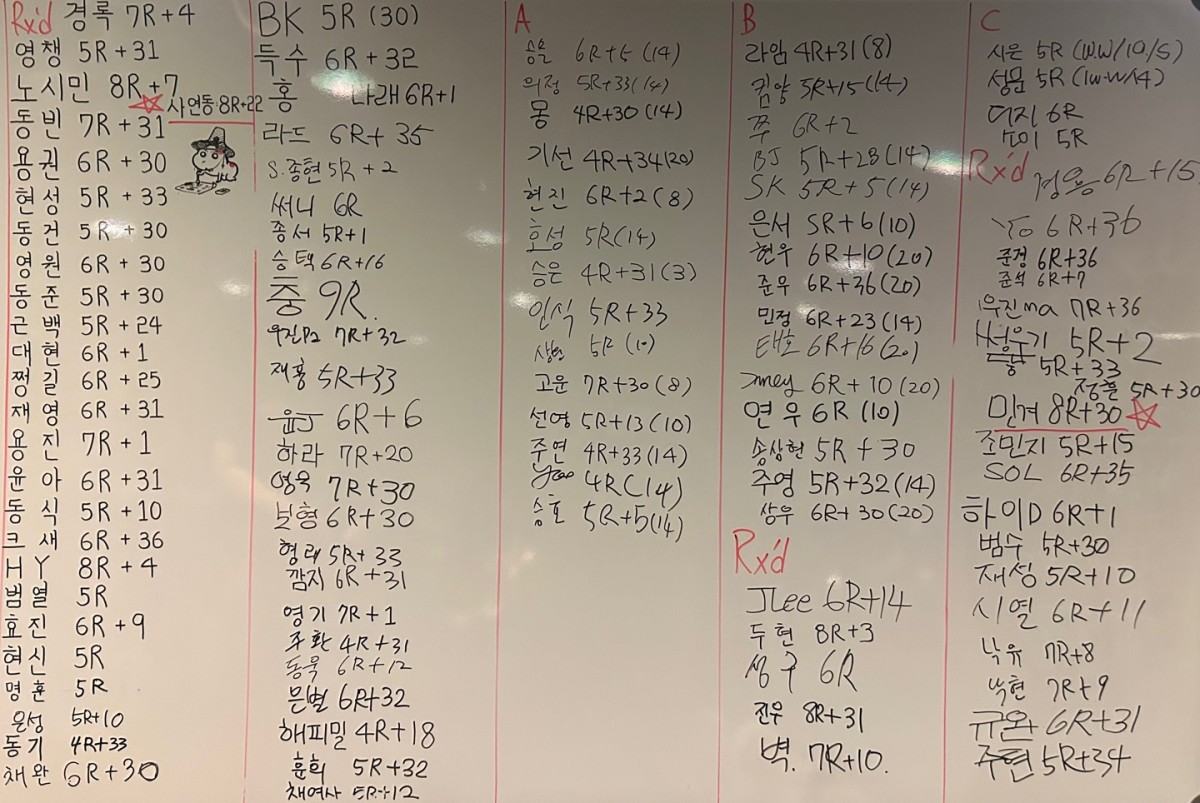 Rx'd 경록 7R+4
영챙 5R+31
노시민 8R+7
사연동·8R+22
동빈 7R+31
용권 6R+30
현성 5R+33
동건 5R+30
영원 6R+30
동준 5R+30
근백 5R+24
대현 6R+1
쩡길 6R+25
재영 6R+31
용진 7R+1
윤아 6R+31
동식 5R+10
크새 6R+36
HY 8R+4
범열 5R
효진 6R+9
현신 5R
명훈 5R
은성 5R+10
동기 4R+33
채완 6R+30
BK 5R (30)
득수 6R+32
홍 나래 6R+1
라드 6R+35
S.종현 5R+2
써니 6R
종서 5R+1
승택 6R+16
중 9R.
우진Pa 7R+32
재홍 5R+33
윤J 6R+6
하라 7R+20
영욱 7R+30
보형 6R+30
형래 5R+33
깜지 6R+31
영기 7R+1
주환 4R+31
동욱 6R+12
은별 6R+32
해피밀 4R+18
훈희 5R+32
채여사 5R+12
A
승은 6R+5 (14)
의정 5R+33 (14)
몽 4R+30 (14)
기선 4R+34(20)
현진 6R+2 (8)
효성 5R(14)
승은 4R+31(3)
인식 5R+33
5R (10)
고운 7R+30 (8)
선영 5R+13 (10)
주연 4R+33 (14)
Yoo 4R(14)
승호 5R+5(14)
B
라임 4R+31 (8)
킴양 5R+15(14)
쭈 6R+2
BJ 5R+28(14)
SK 5R+5(14)
은서 5R+6(10)
현우 6R+10(20)
준우 6R+36(20)
민정 6R+23(14)
태호 6R+16(20)
Jmey 6R+10(20)
연우 6R (10)
송상현 5R+30
주영 5R+32(14)
상우 6R+30(20)
Rx'd
JLee 6R+14
두현 8R+3
성구 6R
진우 8R+31
벽. 7R+10.
C
시은 5R (W.W/10/5)
성문 5R (1W-W/14)
여지 6R
5R
Rx'd 정용 6R+15
6R+36
준경 6R+36
준석 6R+7
우진ma 7R+36
5R+2
5R+33
정훈 5R+30
민겨 8R+30
조민지 5R+15
SOL 6R+35
하이D 6R+1
범수 5R+30
재성 5R+10
시열 6R+11
낙유 7R+8
낙현 7R+9
규완 6R+31
주현 5R+34